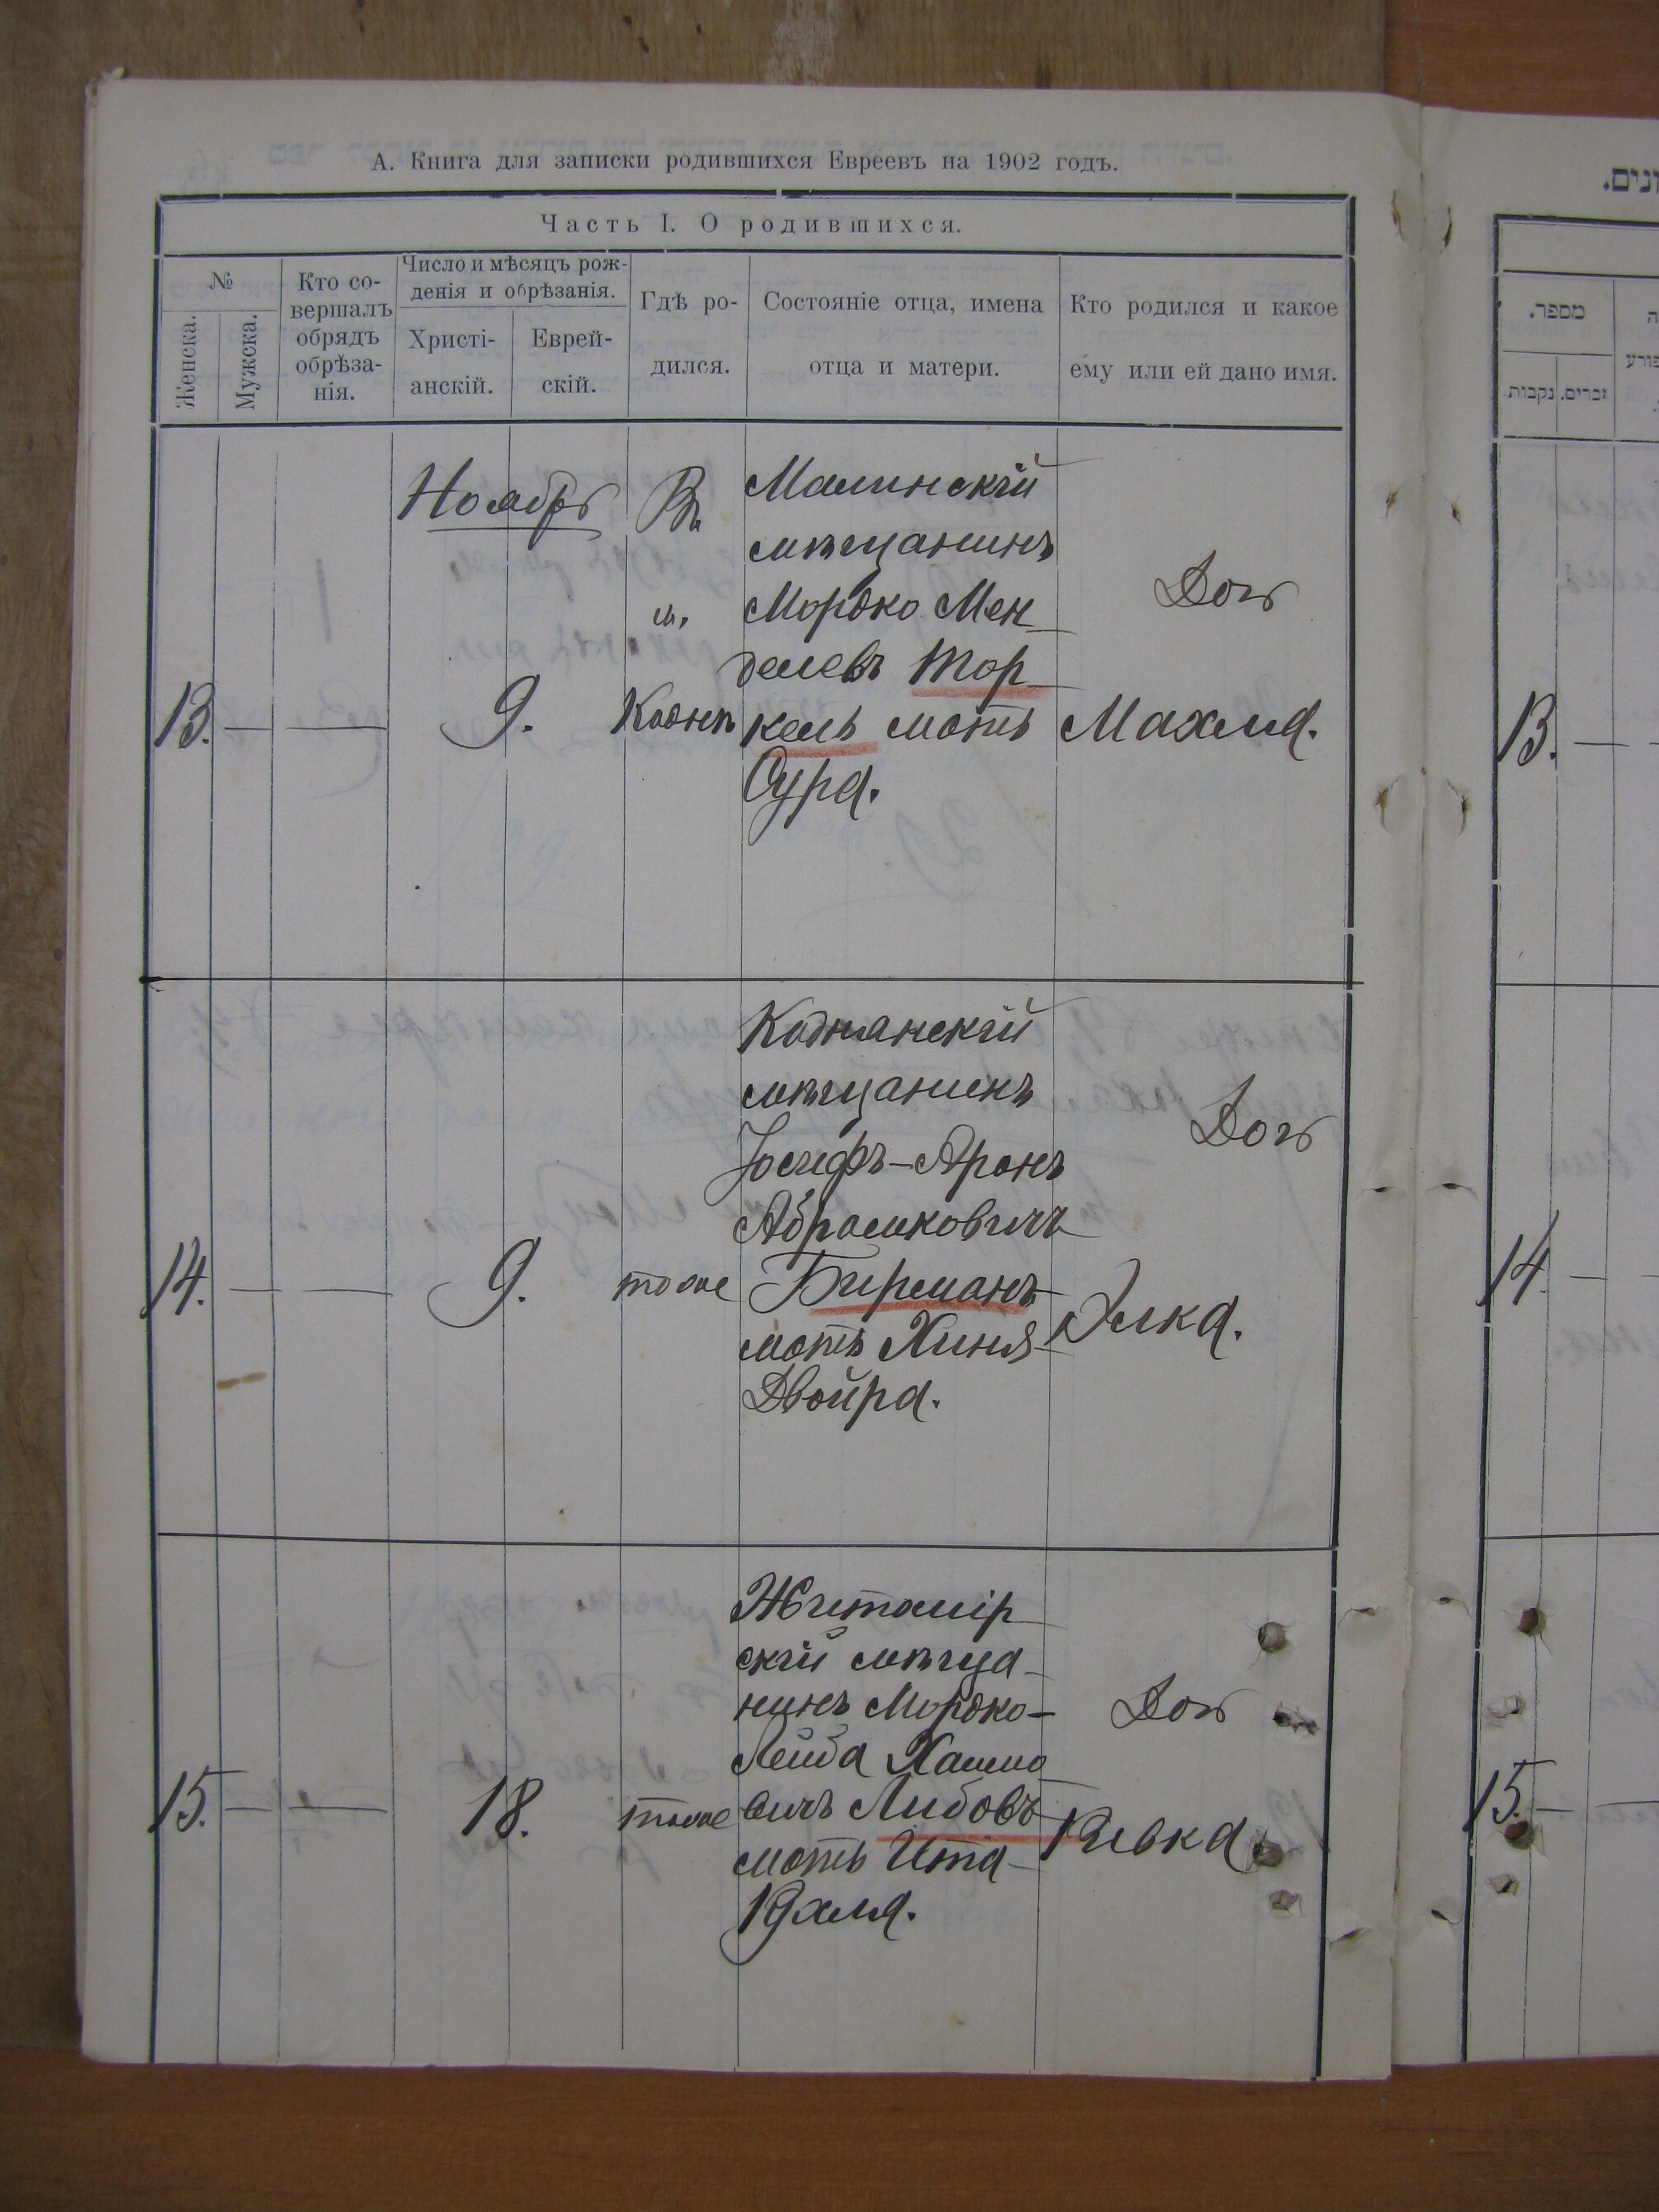 А. Книга для записки родившихся Евреевъ на 1902 годъ.
Часть I. О родившихся.
№
Женска.
Мужска.
Кто со-
вершалъ
обрядъ
обрѣза-
нія.
Число и мѣсяцъ рож-
денія и обрѣзанія.
Христі-
анскій.
Еврей-
скій.
Гдѣ ро-
дился.
Состояніе отца, имена
отца и матери.
Кто родился и какое
ему или ей дано имя.
13.
Ноябрь
9.
В.
м.
Коднѣ
Малинскій
мѣщанинъ
Мордко Мен
делевъ Тор
кель мать
Сура.
Дочь
Махля.
14.
9.
тоже
Коднянскій
мѣщанинъ
Іосифъ-Аронъ
Абрамковичъ
Бирманъ
мать Хиня
Двойра.
Дочь
Элка.
15.
18.
тоже
Житомір
скій мѣща
нинъ Мордко-
Лейба Хаимо
вичъ Либовъ
мать Ита
Рухля.
Дочь
Ривка
ונים.
מספר.
זכרים.
נקבות.
13.
14.
15.